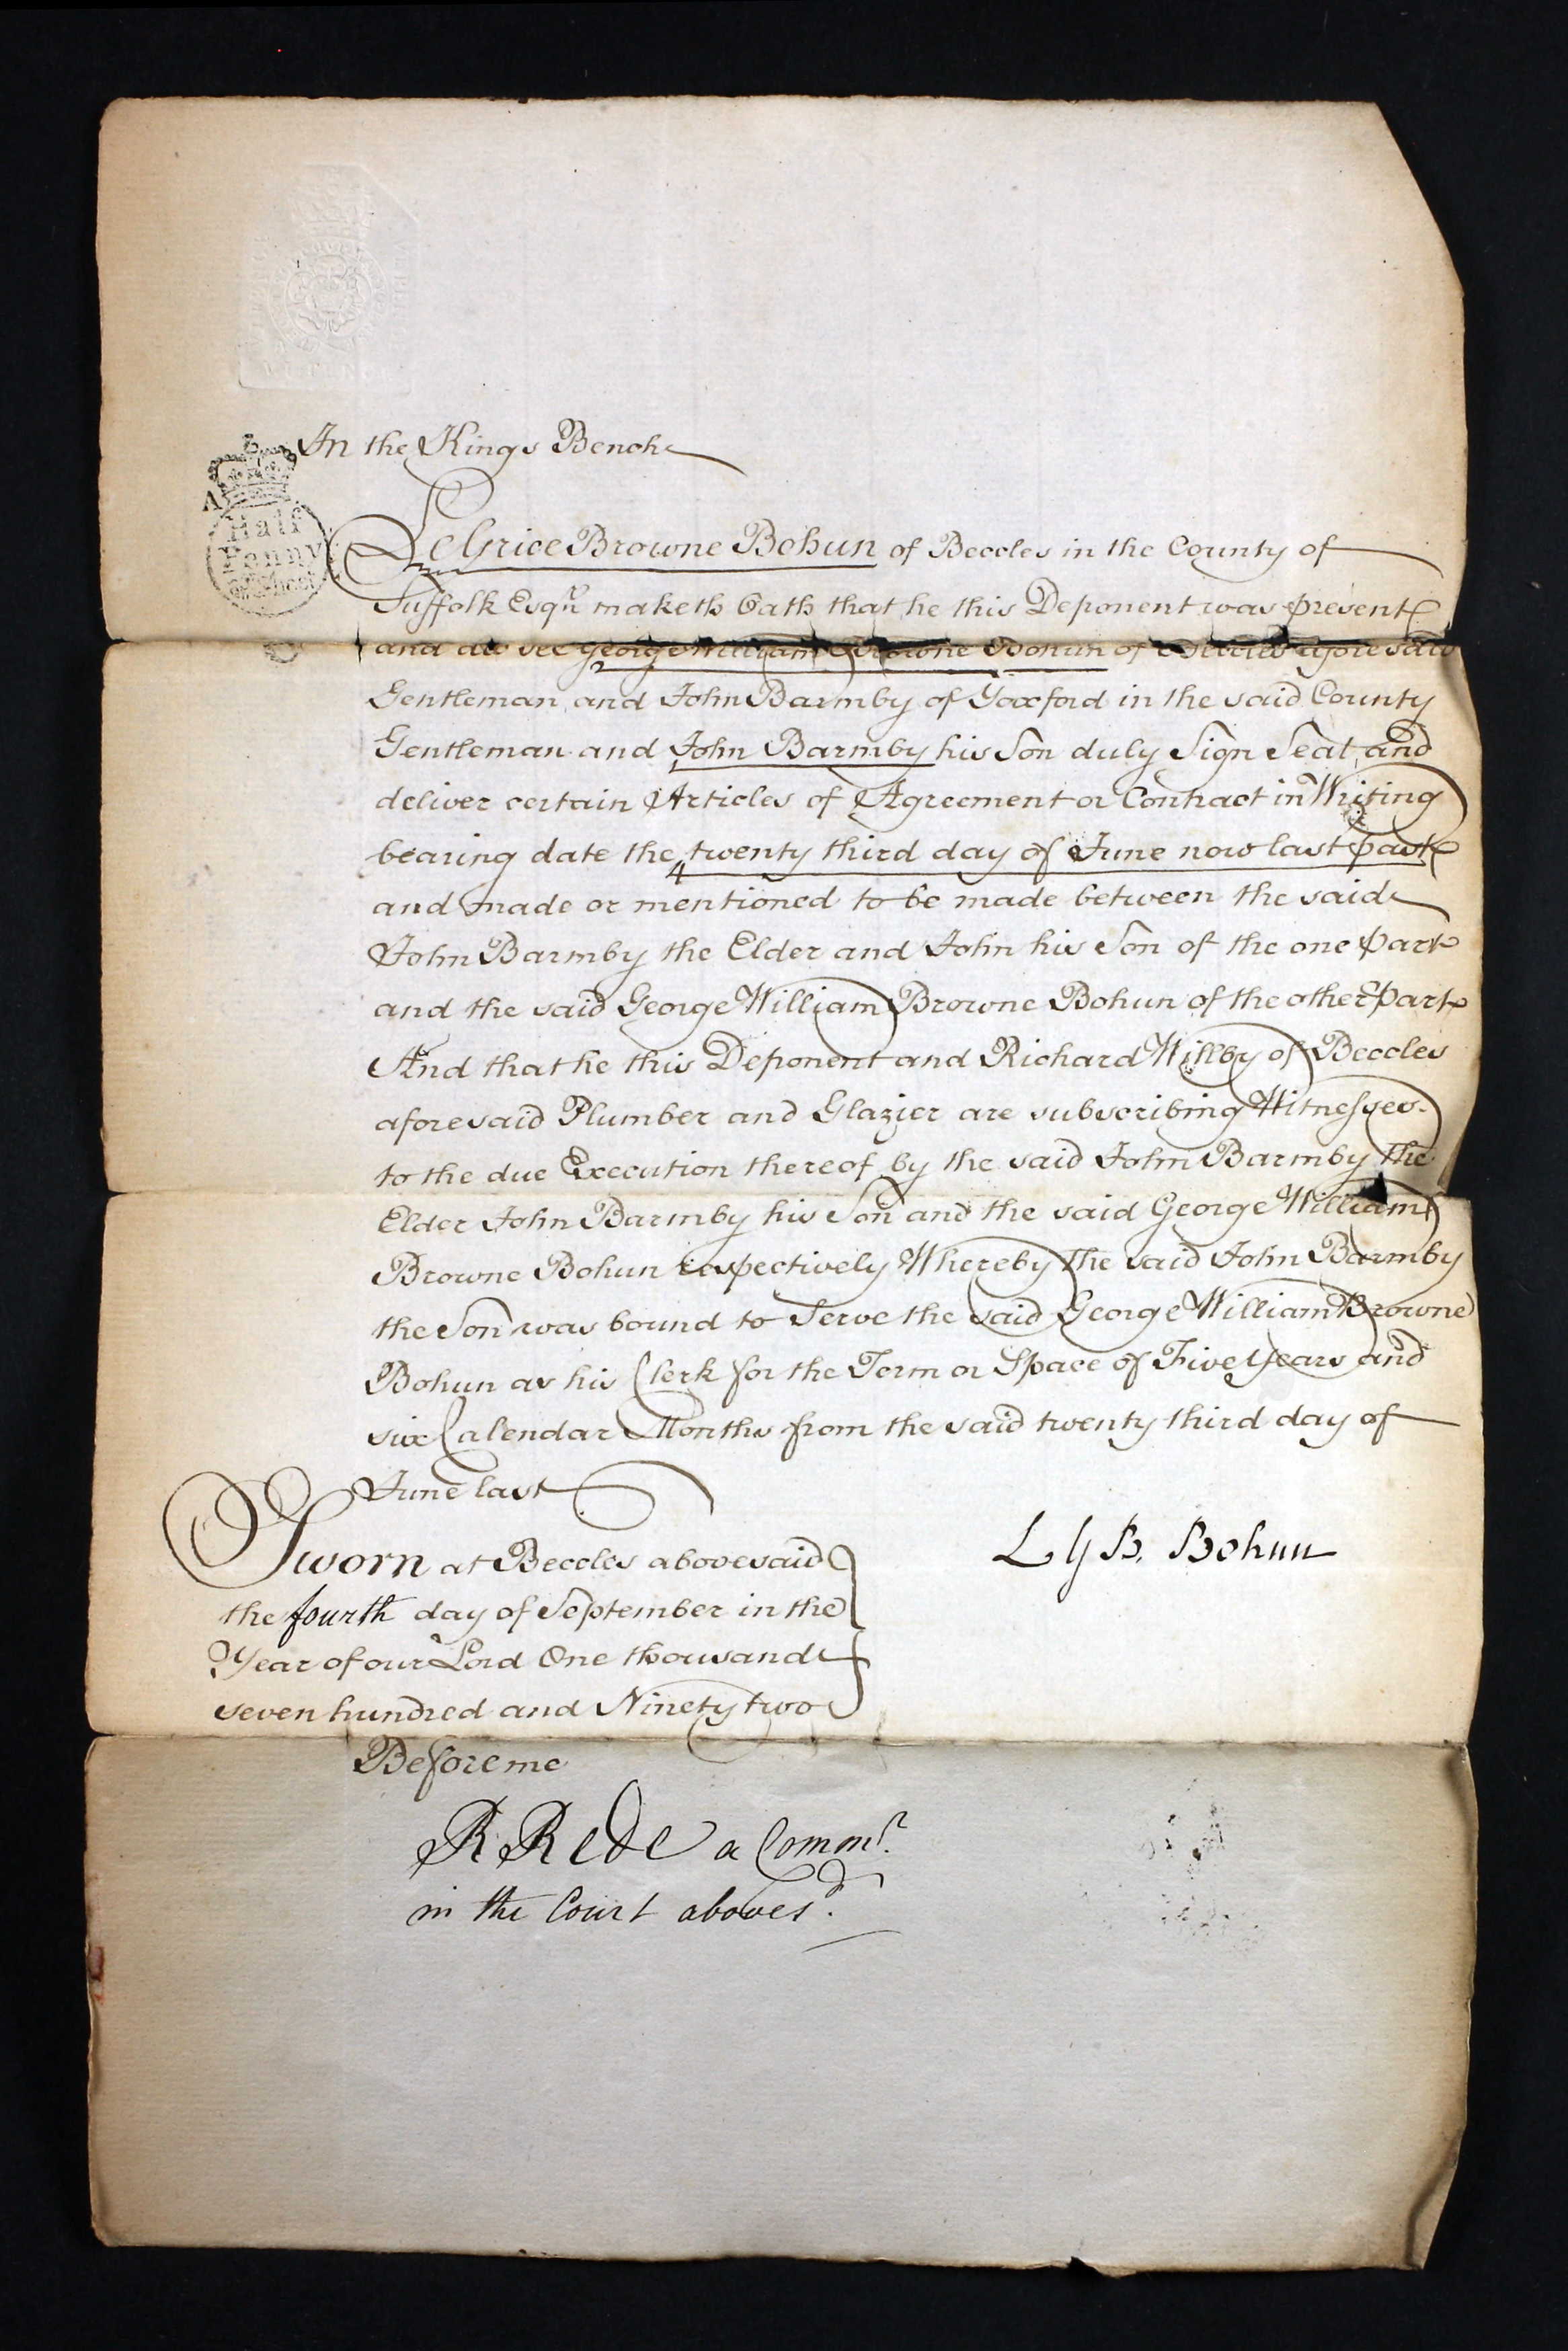 In the Kings Bench
A
Half
Penny
LeGrice Browne Bohun of Beccles in the County of
Suffolk Esqr. maketh Oath that he this Deponent was present
and did see George William Browne Bohun of Beccles aforesaid
Gentleman and John Barmby of Yoxford in the said County
Gentleman and John Barmby his Son duly Sign Seal and
deliver certain Articles of Agreement or Contract in Writing
bearing date the twenty third day of June now last past
and made or mentioned to be made between the said
John Barmby the Elder and John his Son of the one Part
and the said George William Browne Bohun of the other Part
And that he this Deponent and Richard Willby of Beccles
aforesaid Plumber and Glazier are subscribing Witnesses
to the due Execution thereof by the said John Barmby the
Elder John Barmby his Son and the said George William
Browne Bohun respectively Whereby the said John Barmby
the Son was bound to Serve the said George William Browne
Bohun as his Clerk for the Term or Space of Five Years and
six Calendar Months from the said twenty third day of
June last
Sworn at Beccles abovesaid
the fourth day of September in the
Year of our Lord One thousand
seven hundred and Ninety two
L G B. Bohun
Before me
R Rede a Commr.
in the Court aboves.d